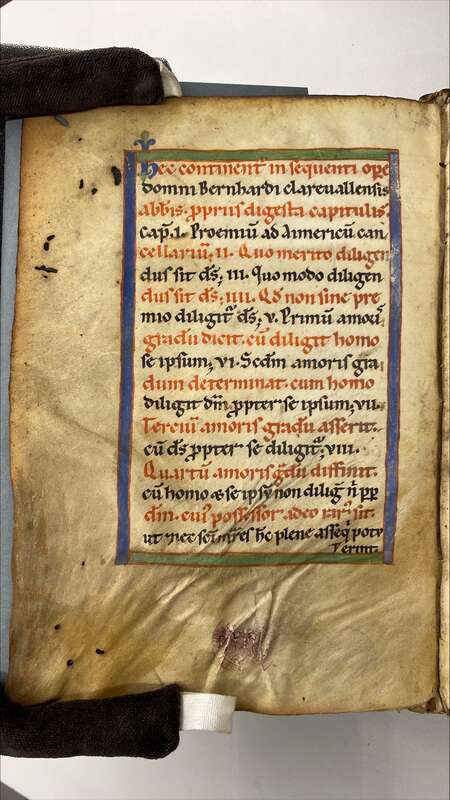 Hec continent' in sequenti ope
domni Bernhardi clarevallensis
abb̄is. ꝓprius digesta capitulis.
cap̄. 1. Proemiū ad Aimericū can
cellariū, II. Quo merito diligen
dus sit d̄s, III. Quo modo diligen
dus sit d̄s; IIII. Qd̄ non sine pre
mio diligit' d̄s; V. Primū amoris
gradū dicit. cū diligit homo
se ipsum; VI. Scdm̄ amoris gra
dum determinat. cum homo
diligit dm̄ ꝓpter se ipsum; VII.
Terciū amoris gradū asserit.
cū d̄s ꝓpter se diligit'; VIII.
Quartū amoris ḡdū diffinit.
cū homo se ipsū non diliḡ n̄ ꝓp̄
dm̄. cui' possessor adeo rar' sit.
ut nec sc̄i m̄res hc̄ plene asseq̄ potu
erint.